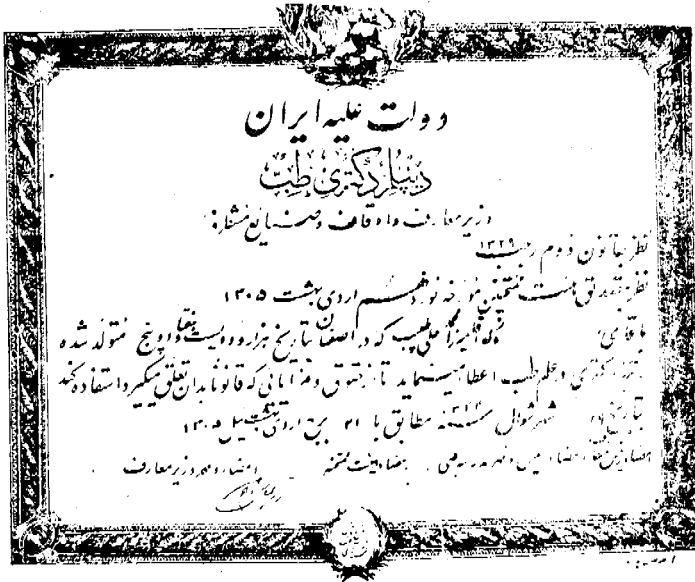 دولت علیه ایران
دیپلم دکتری طب
وزیر معارف و اوقاف و صنایع مستظرفه
نظر بقانون دوم رجب ۱۳۲۹
نظر بتصدیق هیئت ممتحنین مورخه نوزدهم اردی بهشت ۱۳۰۵
بآقای میرزا علی طبیب که در اصفهان بتاریخ هزار و دویست و هفتاد و پنج متولد شده
دکتری در علم طب اعطا مینماید تا از حقوق و مزایائی که قانونا بدان تعلق میگیرد استفاده کند
بتاریخ شهر شوال مطابق با ۳۱ برج اردی بهشت ۱۳۰۵
امضاء هیئت ممتحنه امضاء و مهر وزیر معارف